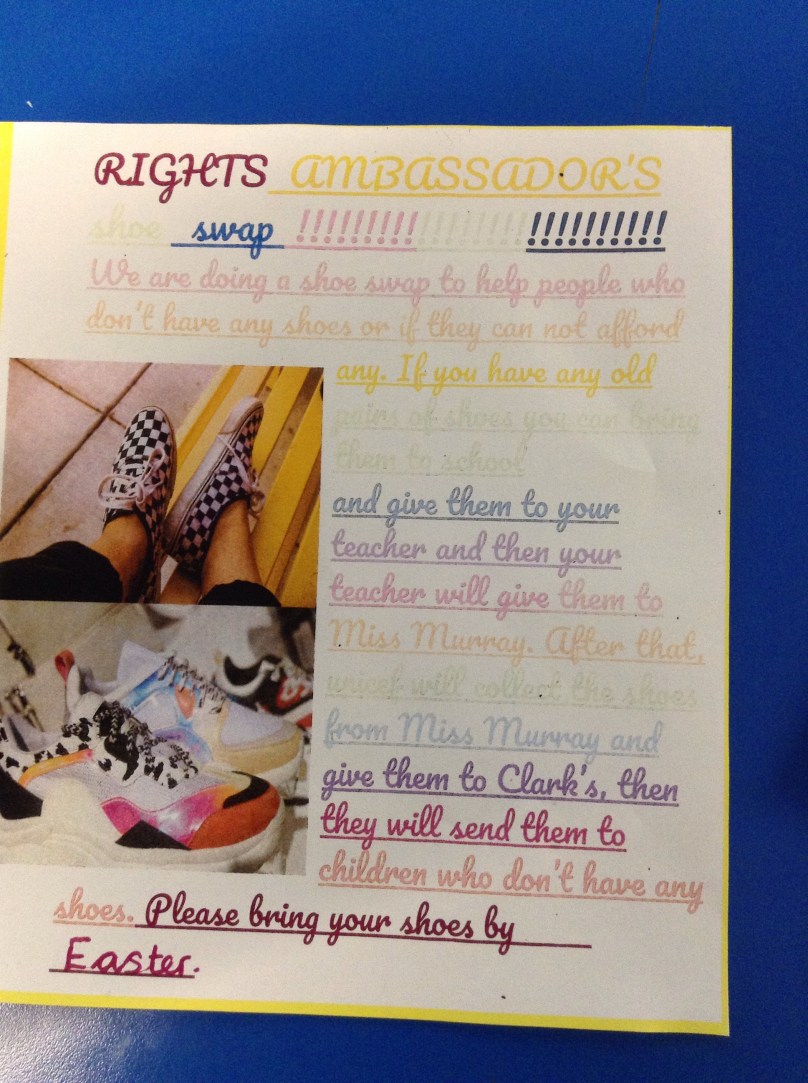 RIGHTS AMBASSADOR'S
shoe swap !!!!!!!!!!!!!!!!!!!!!!!!!!!!!!
We are doing a shoe swap to help people who
don't have any shoes or if they can not afford
any. If you have any old
pairs of shoes you can bring
them to school
and give them to your
teacher and then your
teacher will give them to
Miss Murray. After that,
unicef will collect the shoes
from Miss Murray and
give them to Clark's, then
they will send them to
children who don't have any
shoes. Please bring your shoes by
Easter.